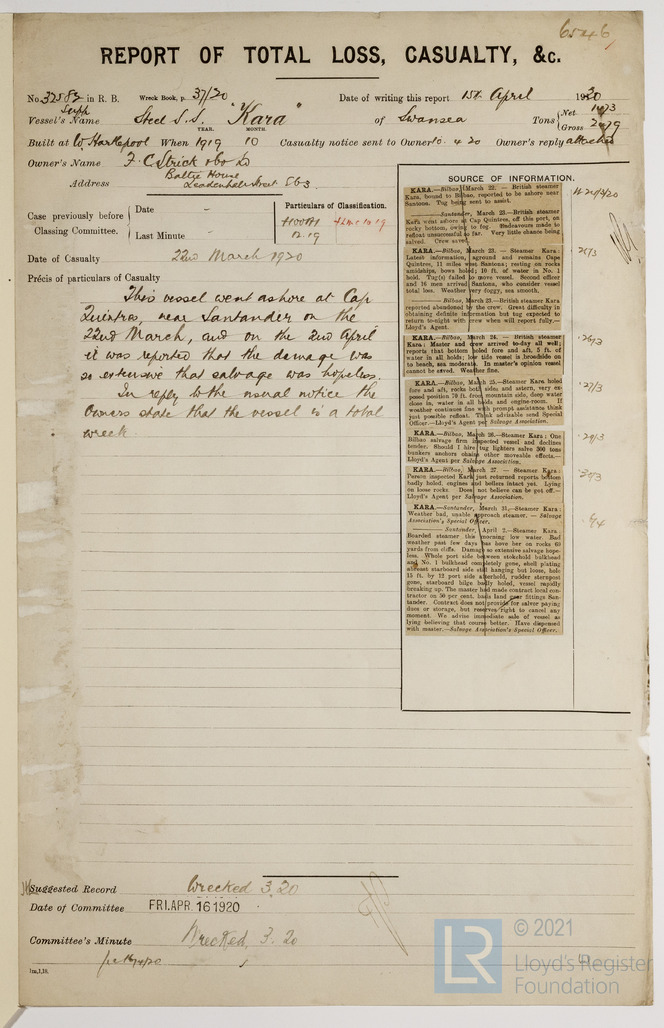 6546
REPORT OF TOTAL LOSS, CASUALTY, &c.
No. 32582 in R. B. Wreck Book, p. 37/20 Date of writing this report 15th April 1920
Supp
Vessel's Name Steel S.S. "Kara" of Swansea Tons { Net 1473
Gross 2479
YEAR. MONTH.
Built at W. Hartlepool When 1919 10 Casualty notice sent to Owner 10. 4. 20 Owner's reply attached
Owner's Name F. C. Strick & Co Ld
Address Baltic House
Leadenhall Street EC3
Case previously before Classing Committee. { Date –
Last Minute –
Particulars of Classification.
+100A1
12.19
Date of Casualty 22nd March 1920
Précis of particulars of Casualty
This vessel went ashore at Cap
Quintres, near Santander on the
22nd March, and on the 2nd April
it was reported that the damage was
so extensive that salvage was hopeless.
In reply to the usual notice the
Owners state that the vessel is a total
wreck
SOURCE OF INFORMATION.
KARA.—Bilbao, March 22. — British steamer
Kara, bound to Bilbao, reported to be ashore near
Santona. Tug being sent to assist.
——— Santander, March 23.—British steamer
Kara went ashore at Cap Quintres, off this port, on
rocky bottom, owing to fog. Endeavours made to
refloat unsuccessful so far. Very little chance being
salved. Crew saved.
KARA.—Bilbao, March 23. — Steamer Kara:
Latest information, aground and remains Cape
Quintres, 11 miles west Santona; resting on rocks
amidships, bows holed; 10 ft. of water in No. 1
hold. Tug(s) failed to move vessel. Second officer
and 16 men arrived Santona, who consider vessel
total loss. Weather very foggy, sea smooth.
——— Bilbao, March 23.—British steamer Kara
reported abandoned by the crew. Great difficulty in
obtaining definite information but tug expected to
return to-night with crew when will report fully.—
Lloyd's Agent.
KARA.—Bilbao, March 24. — British steamer
Kara: Master and crew arrived to-day all well;
reports that bottom holed fore and aft, 5 ft. of
water in all holds; low tide vessel is broadside on
to beach, sea moderate. In master's opinion vessel
cannot be saved. Weather fine.
KARA.—Bilbao, March 25.—Steamer Kara holed
fore and aft, rocks both sides and astern, very ex-
posed position 70 ft. from mountain side, deep water
close in, water in all holds and engine-room. If
weather continues fine with prompt assistance think
just possible refloat. Think advisable send Special
Officer.—Lloyd's Agent per Salvage Association.
KARA.—Bilbao, March 26.—Steamer Kara: One
Bilbao salvage firm inspected vessel and declines
tender. Should I hire tug lighters salve 300 tons
bunkers anchors chains other moveable effects.—
Lloyd's Agent per Salvage Association.
KARA.—Bilbao, March 27. — Steamer Kara:
Person inspected Kara just returned reports bottom
badly holed, engines and boilers intact yet. Lying
on loose rocks. Does not believe can be got off.—
Lloyd's Agent per Salvage Association.
KARA.—Santander, March 31.—Steamer Kara:
Weather bad, unable approach steamer. — Salvage
Association's Special Officer.
——— Santander, April 2.—Steamer Kara:
Boarded steamer this morning low water. Bad
weather past few days has hove her on rocks 60
yards from cliffs. Damage so extensive salvage hope-
less. Whole port side between stokehold bulkhead
and No. 1 bulkhead completely gone, shell plating
almost starboard side still hanging but loose, hole
15 ft. by 12 port side afterhold, rudder sternpost
gone, starboard bilge badly holed, vessel rapidly
breaking up. The master had made contract local con-
tractor on 50 per cent. basis land gear fittings San-
tander. Contract does not provide for salver paying
dues or storage, but reserves right to cancel any
moment. We advise immediate sale of vessel as
lying believing that course better. Have dispensed
with master.—Salvage Association's Special Officer.
25/3
26/3
27/3
29/3
30/3
6/4
Suggested Record Wrecked 3.20
Date of Committee FRI. APR. 16 1920
Committee's Minute Wrecked, 3. 20
1m,1,18.
LR © 2021
Lloyd's Register
Foundation